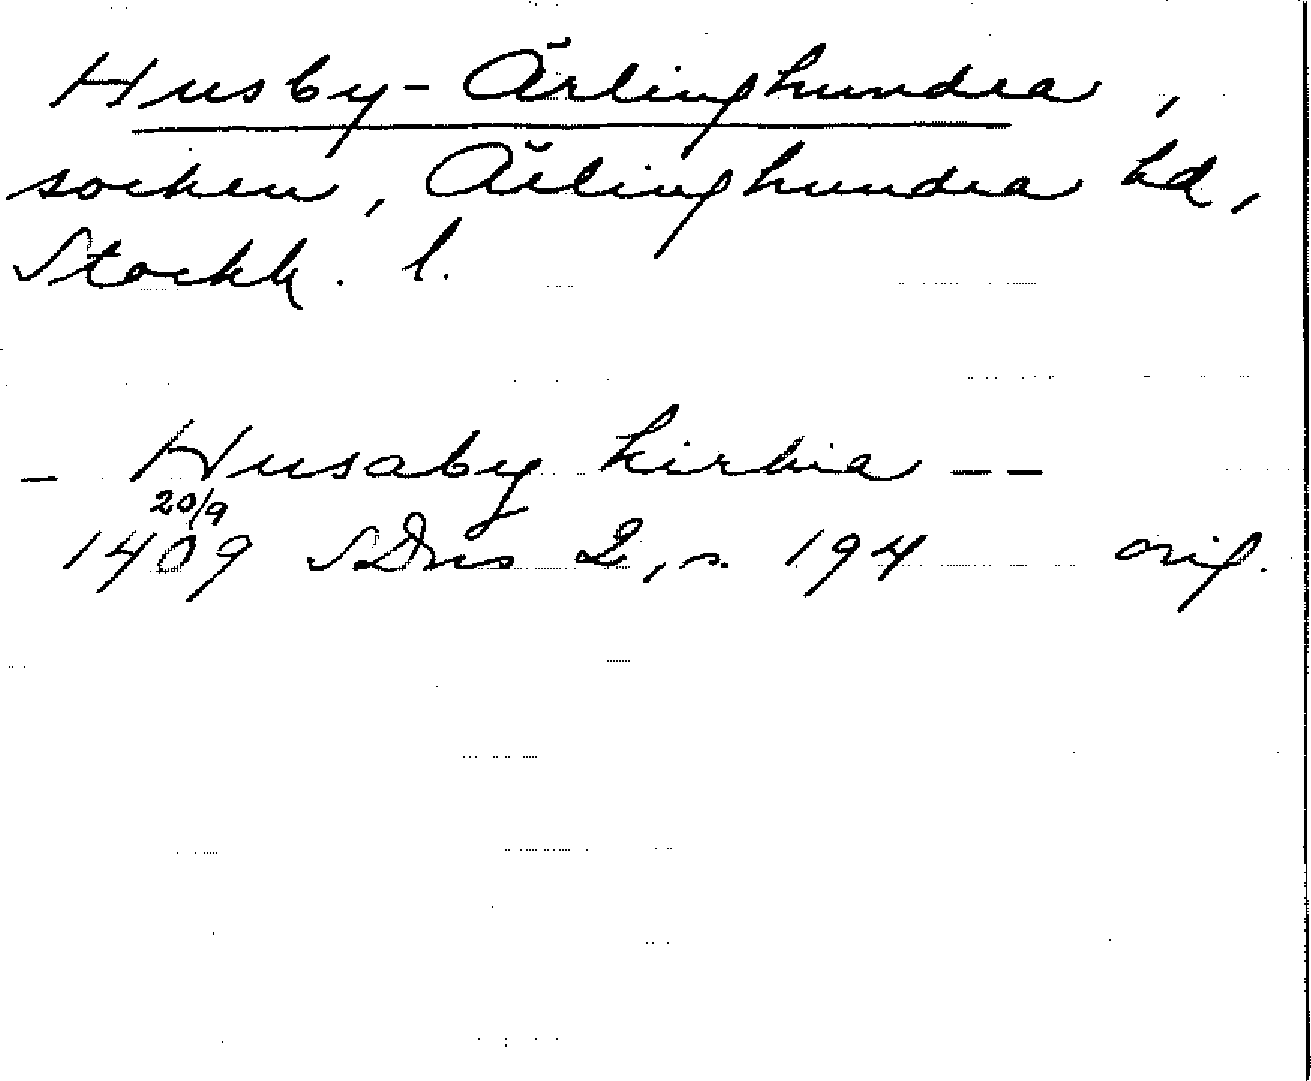 Husby-Ärlinghundra,
socken, Ärlinghundra hd,
Stockh. l.
- Husaby kirkia --
20/9
1409 SDns 2, s. 194 orig.